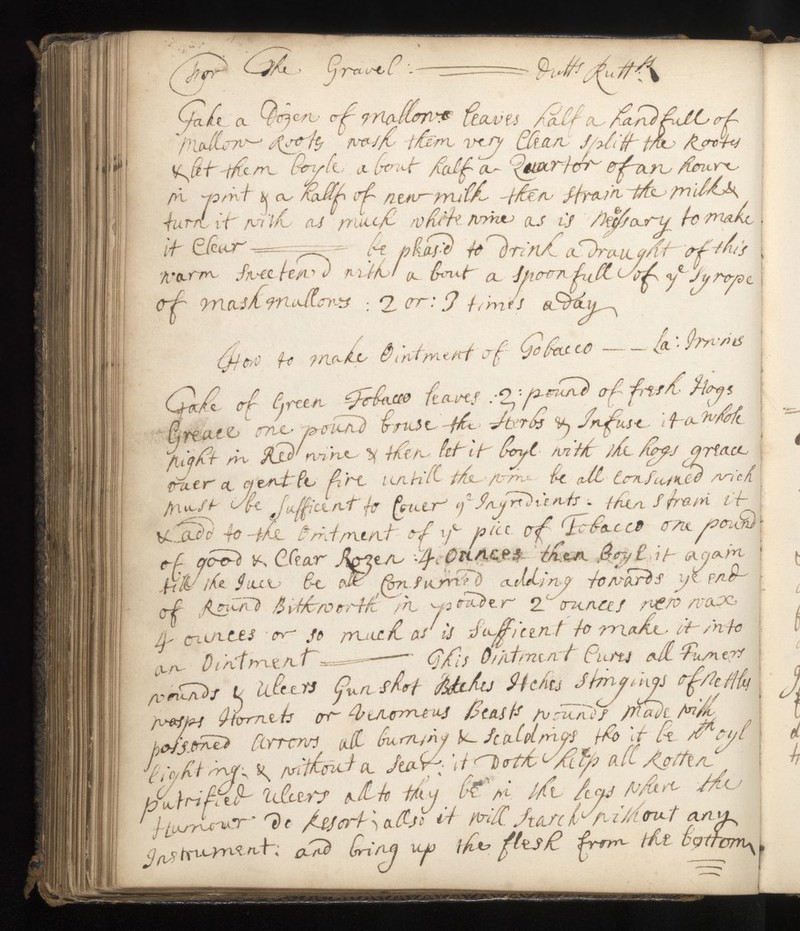 For The Gravel: Dutts Rutt
Take a Dozen of mallows leaves half a handfull of
mallow Roots wash them very Clean splitt the Rootes
& let them boyle about half a Quartor of an houre
in pint & a hallf of new milk then strain the milk &
turn it with as much white wine as is nessary to make
it Clear be pleas'd to drink a Draught of this
warm Sweeten'd with a bout a spoonfull of ye Syrope
of mashmallows : 2 or : 3 times a day
How to make Ointment of Tobacco La: Irwins
Take of Green Tobacco leaves : 2 : pound of fresh Hogs
Greace one pound bruse the Herbs & Infuse it a whole
night in Red wine & then let it boyl with the hogs greace
over a gentle fire untill the wine be all Consumed wich
must be Sufficent to Couer ye Ingredients : then strain it
& add to the Ointment of ye juce of Tobacco one pound
of good & Clear Rozen : 4 Ounces then boyl it again
till the Juce be all Consumed adding towards ye end
of Round Bithworth in pouder 2 ounces new wax
4 ounces or so much as is Sufficent to make it into
an Ointment This Ointment Cures all Tumers
wounds & Ulcers Gunshot Itches Stingings of Nettles
wasps Hornets or Venomous Beasts wounds made with
poisoned Arrows all burning & Scaldings tho it be wth oyl
lighting : & without a Scar : it Doth help all Rotten
putrified Ulcers all to they be in the legs where the
Humour do Resort ; allso it will Search without any
Instrument : and bring up the flesh from the bottom